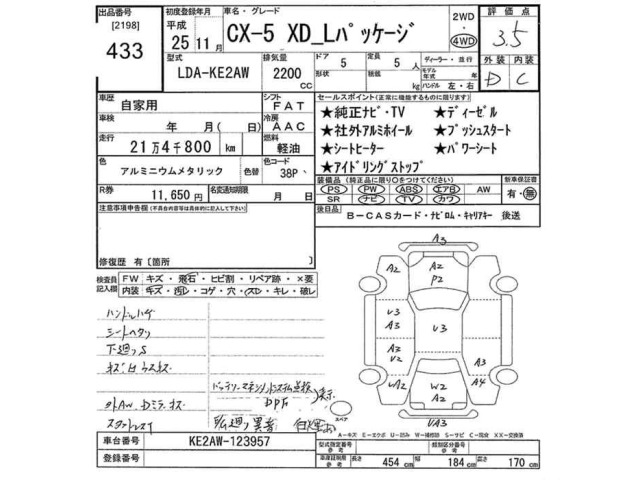 出品番号
[2198]
433
初度登録年月
平成
25 11月
車名・グレード
CX-5 XD_Lパッケージ
2WD
4WD
評価点
3.5
外装 内装
D C
型式
LDA-KE2AW
排気量
2200
CC
ドア
形状
5
定員
5 人
積載
kg
ディーラー・並行
モデル
年式 年
ハンドル 左・右
車歴
自家用
シフト
FAT
車検
年 月( 日)
冷房
AAC
走行
21万4千800 km
燃料
軽油
色
アルミニウムメタリック
色替
色コード
38P
R券
11,650 円
名変通知期限
月 日
セールスポイント(正常に機能するものに限ります)
★純正ナビ・TV ★ディーゼル
★社外アルミホイール ★プッシュスタート
★シートヒーター ★パワーシート
★アイドリングストップ
装備品 (純正品に限り○をつけてください)
PS PW ABS エア目 AW
SR ナビ TV カワ
新車保証書
有・無
後日品
B-CASカード・ナビロム・キャリアキー 後送
注意事項申告欄 (不具合内容等は具体的に記入して下さい)
修復歴 有〔箇所 〕
検査員
記入欄
FW キズ・飛石・ヒビ割・リペア跡・×要
内装 キズ・汚レ・コゲ・穴・スレ・キレ・破レ
ハンドルハゲ
シートヘタリ
下廻りS
キズ凹ウスキズ
バッテリーマネジメントシステム点検
DPF
表示
外AW、Dミラーキズ
スタッドレス
異音
白煙
A3
A2
A2
P2
A2
U3
A3
U3
A2
U2
A3
WA2
W2
A2
A4
UA3
スペア
A-キズ E-エクボ U-凹み W-補修跡 S-サビ C-腐食 XX-交換済
車台番号
KE2AW-123957
登録番号
型式指定番号
参考
類別区分番号
参考
車庫証明用
参考
長さ 454 cm
幅 184 cm
高さ 170 cm